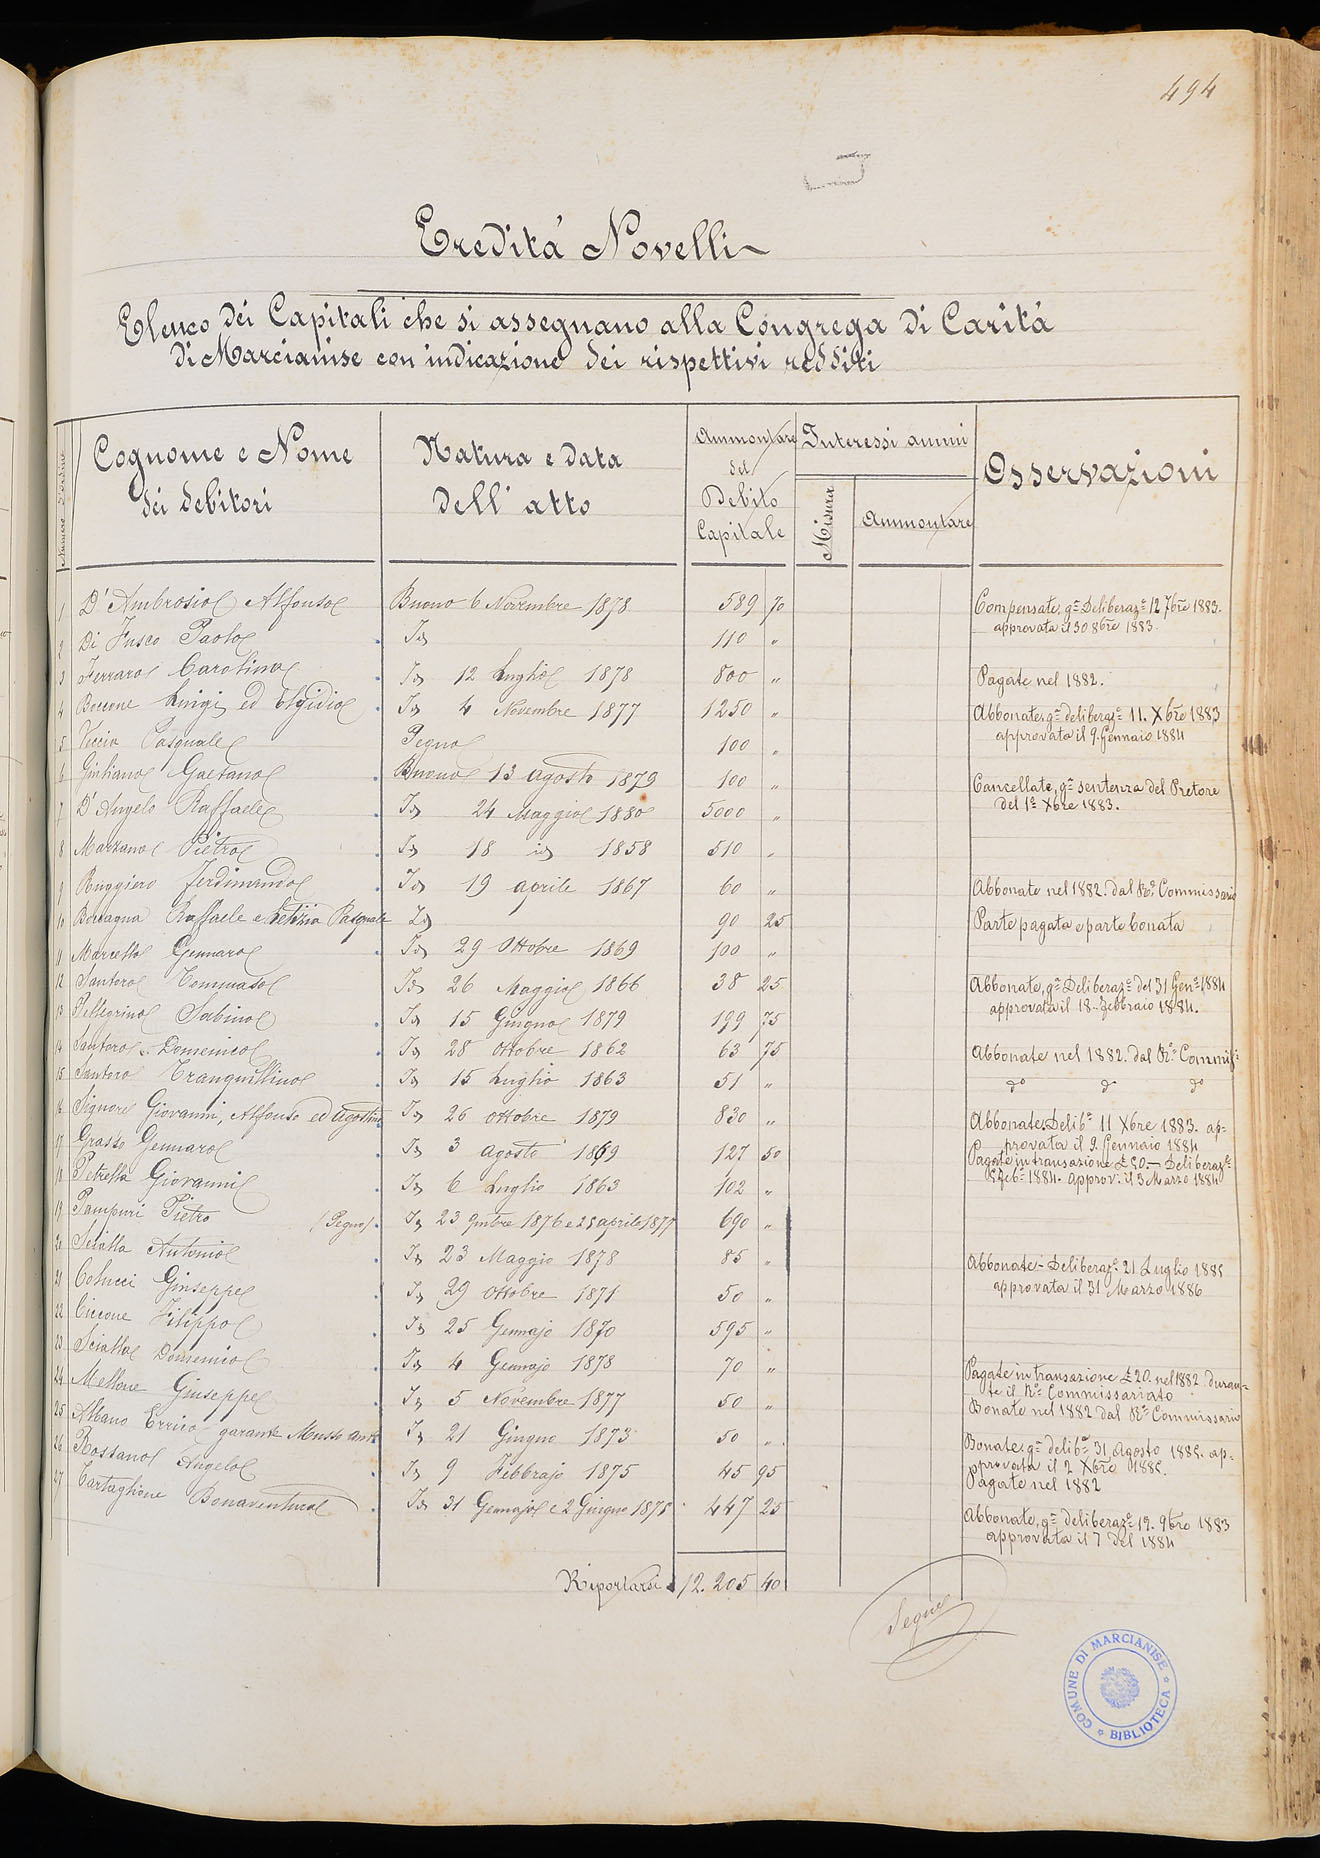 494
Eredità Novelli
Elenco dei Capitali che si assegnano alla Congrega di Carità
di Marcianise con indicazione dei rispettivi redditi
Numero d'ordine
Cognome e Nome dei debitori
Natura e data dell'atto
Ammontare del Debito Capitale
Interessi annui
Misura
Ammontare
Osservazioni
1 D'Ambrosio Alfonso Buono 6 Novembre 1878 589 70 Compensate, g.e Deliberaz.e 12 7bre 1883.
approvata il 30 8bre 1883.
2 Di Fusco Paolo Id 110 "
3 Ferraro Carolina Id 12 Luglio 1878 800 " Pagate nel 1882.
4 Boccone Luigi ed Egidio Id 4 Novembre 1877 1250 " Abbonate, g.e deliberaz.e 11. Xbre 1883
approvata il 9. Gennaio 1884
5 Veccia Pasquale Pegno 100 "
6 Giuliano Gaetano Buono 13 Agosto 1879 100 " Cancellate, g.e sentenza del Pretore
del 1.º Xbre 1883.
7 D'Angelo Raffaele Id 24 Maggio 1880 5000 "
8 Marzano Pietro Id 18 id 1858 510 "
9 Ruggiero Ferdinando Id 19 aprile 1867 60 " Abbonate nel 1882. dal R.º Commissario
10 Raffaele e Letizia Pasquale Id 90 25 Parte pagata e parte bonata
11 Marcello Gennaro Id 29 Ottobre 1869 100 "
12 Santoro Tommaso Id 26 Maggio 1866 38 25 Abbonate, g.e Deliberaz.e del 31 Gen.o 1884
approvata il 18 Febbraio 1884.
13 Pellegrino Sabino Id 15 Giugno 1879 199 75
14 Santoro Domenico Id 28 Ottobre 1862 63 75 Abbonate nel 1882. dal R.º Commiss.
15 Santoro Tranquillino Id 15 Luglio 1863 51 " do do do
16 Signore Giovanni, Alfonso ed Agostino Id 26 Ottobre 1879 830 " Abbonate, Delib.e 11 Xbre 1883. ap-
provata il 9. Gennaio 1884
17 Grasso Gennaro Id 3 Agosto 1869 127 50 Pagate in transazione £ 50.- Deliberaz.e
Feb.o 1884. approv. il 3 Marzo 1884
18 Petrella Giovanni Id 6 Luglio 1863 102 "
19 Pampuri Pietro (Pegno) Id 23 9mbre 1876 e 28 aprile 1877 690 "
20 Scialla Antonio Id 23 Maggio 1878 85 " Abbonate - Deliberaz.e 21 Luglio 1885
approvata il 31 Marzo 1886
21 Colucci Giuseppe Id 29 Ottobre 1871 50 "
22 Ciccone Filippo Id 25 Gennajo 1870 595 "
23 Scialla Domenico Id 4 Gennajo 1878 70 " Pagate in transazione £ 20. nel 1882 duran-
te il R.º Commissariato
24 Mellone Giuseppe Id 5 Novembre 1877 50 " Bonate nel 1882 dal R.º Commissario
25 Albano Errico garante Musto Ant. Id 21 Giugno 1873 50 " Bonate, g.e delib.e 31 Agosto 1885. ap-
provata il 2 Xbre 1885.
26 Rossano Angelo Id 9 Febbrajo 1875 45 95 Pagate nel 1882
27 Tartaglione Bonaventura Id 31 Gennajo e 2 Giugno 1875 447 25 Abbonate, g.e deliberaz.e 19. 9bre 1883
approvata il 7 del 1884
Riportarsi £ 12.205 40
Segue
COMUNE DI MARCIANISE
BIBLIOTECA